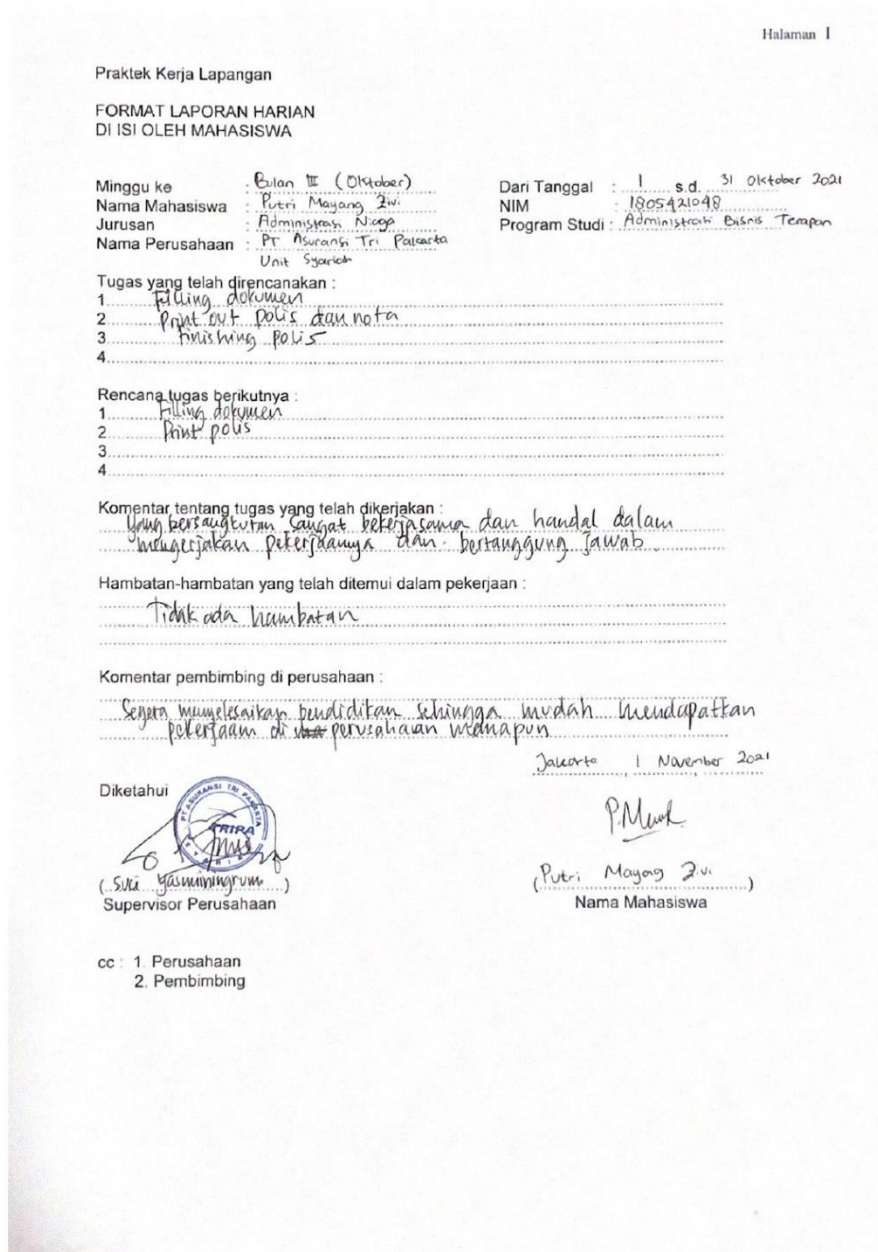 Halaman 1
Praktek Kerja Lapangan
FORMAT LAPORAN HARIAN
DI ISI OLEH MAHASISWA
Minggu ke : Bulan III (Oktober) Dari Tanggal : 1 s.d. 31 Oktober 2021
Nama Mahasiswa : Putri Mayang Zwi NIM : 1805421048
Jurusan : Administrasi Niaga Program Studi : Administrasi Bisnis Terapan
Nama Perusahaan : PT Asuransi Tri Pakarta
Unit Syariah
Tugas yang telah direncanakan :
1 Filling dokumen
2 Print out polis dan nota
3 Finishing polis
4
Rencana tugas berikutnya :
1 Filling dokumen
2 Print polis
3
4
Komentar tentang tugas yang telah dikerjakan :
Yang bersangkutan sangat bekerjasama dan handal dalam
mengerjakan pekerjaannya dan bertanggung jawab.
Hambatan-hambatan yang telah ditemui dalam pekerjaan :
Tidak ada hambatan
Komentar pembimbing di perusahaan :
Segera menyelesaikan pendidikan sehingga mudah mendapatkan
pekerjaan di perusahaan manapun
Jakarta, 1 November 2021
Diketahui
PT ASURANSI TRI PAKARTA
TRIPA
SYARIAH
(Suci Yasminingrum)
Supervisor Perusahaan
(Putri Mayang Zwi)
Nama Mahasiswa
cc : 1. Perusahaan
2. Pembimbing